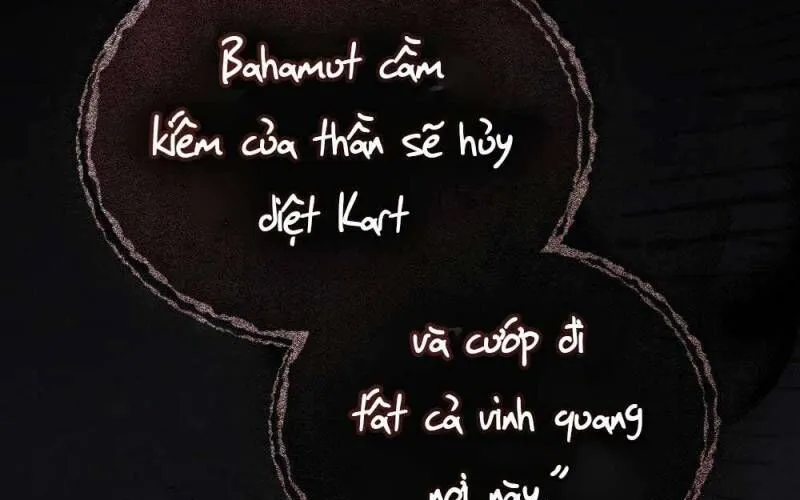 Bahamut cầm
kiếm của thần sẽ hủy
diệt Kart
và cướp đi
tất cả vinh quang
nơi này"